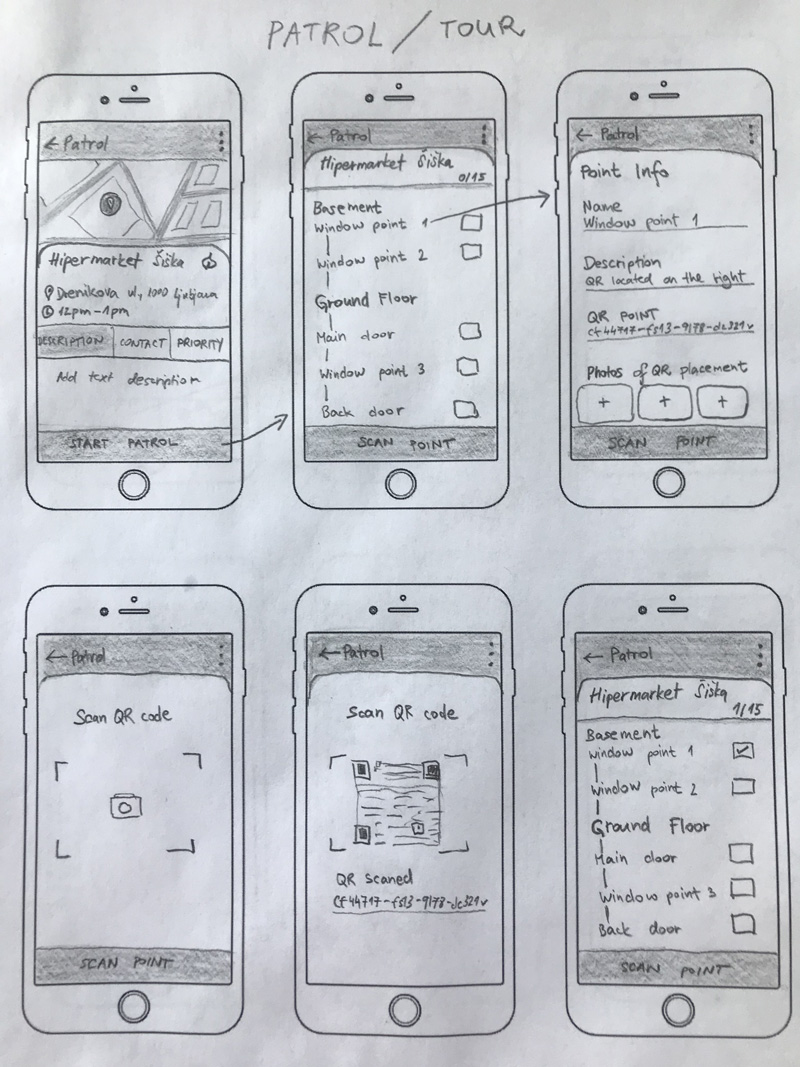 PATROL / TOUR
← Patrol
Hipermarket Šiška
Drenikova ul, 1000 ljubljana
12pm-1pm
DESCRIPTION CONTACT PRIORITY
Add text description
START PATROL
← Patrol
Hipermarket Šiška
0/15
Basement
Window point 1
Window point 2
Ground Floor
Main door
Window point 3
Back door
SCAN POINT
← Patrol
Point Info
Name
Window point 1
Description
QR located on the right
QR POINT
cf44717-fs13-9178-dc321v
Photos of QR placement
+ + +
SCAN POINT
← Patrol
Scan QR code
SCAN POINT
← Patrol
Scan QR code
QR scaned
cf44717-fs13-9178-dc321v
← Patrol
Hipermarket Šiška
1/15
Basement
Window point 1
Window point 2
Ground Floor
Main door
Window point 3
Back door
SCAN POINT